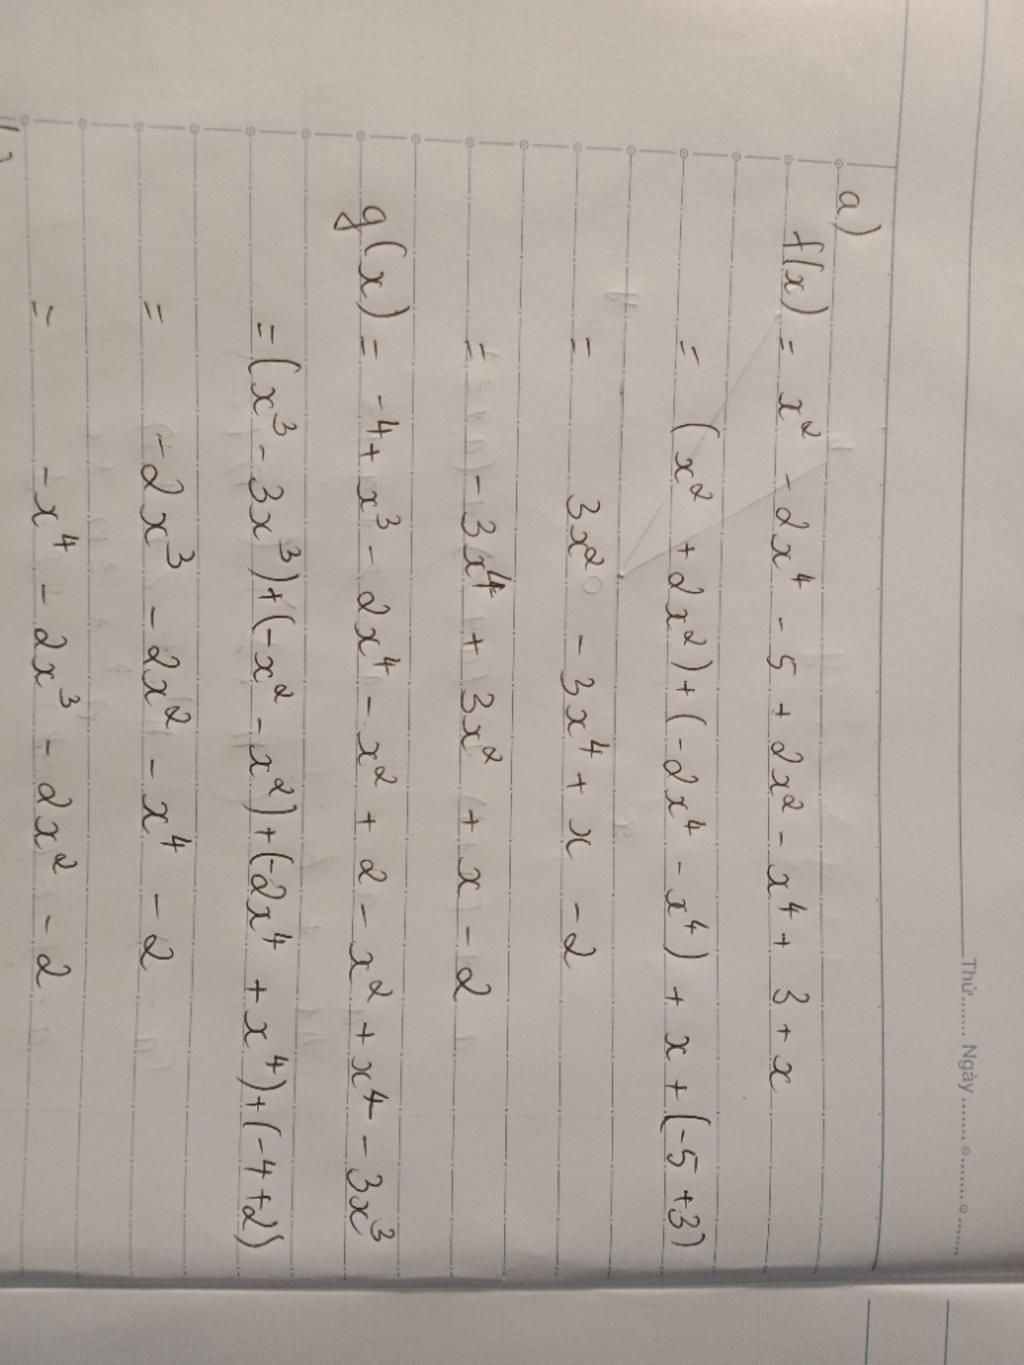 Thứ........ Ngày........
a)
f(x) = x² - 2x⁴ - 5 + 2x² - x⁴ + 3 + x
= (x² + 2x²) + (-2x⁴ - x⁴) + x + (-5 + 3)
= 3x² - 3x⁴ + x - 2
= -3x⁴ + 3x² + x - 2
g(x) = -4 + x³ - 2x⁴ - x² + 2 - x² + x⁴ - 3x³
= (x³ - 3x³) + (-x² - x²) + (-2x⁴ + x⁴) + (-4 + 2)
= -2x³ - 2x² - x⁴ - 2
= -x⁴ - 2x³ - 2x² - 2